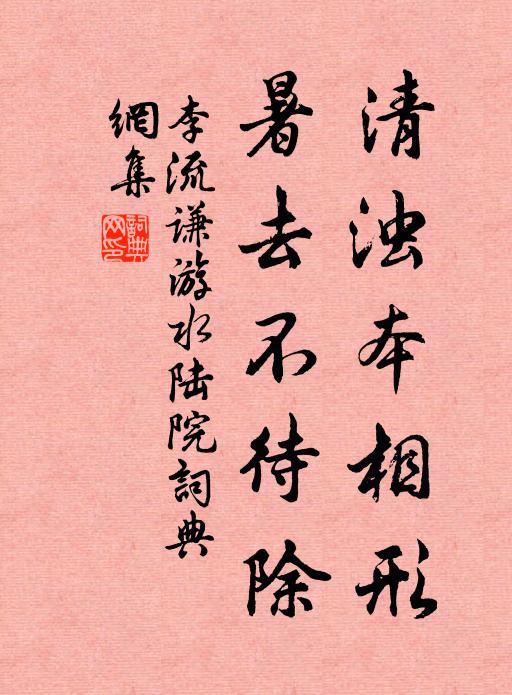 清浊本相形
暑去不待除
李流谦游水陆院詞典
網集
詞典網印